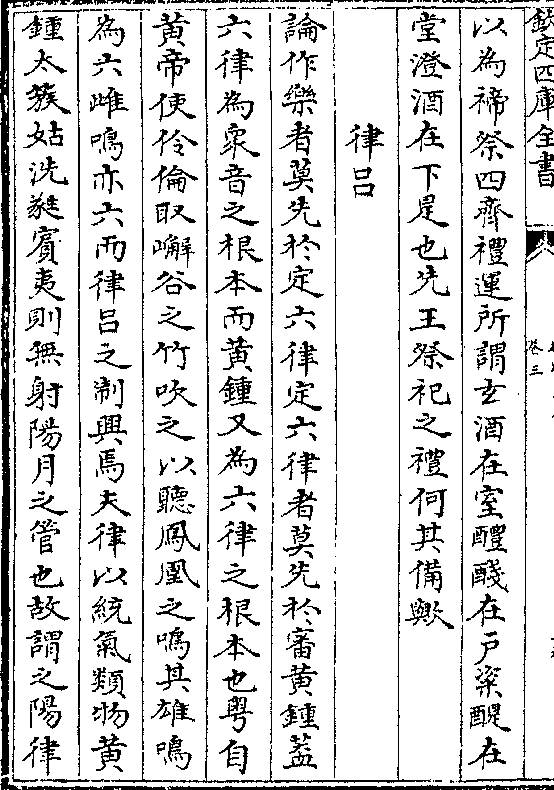 欽定四庫全書
卷三
以為禘祭四齊禮運所謂玄酒在室醴醆在戶粢醍在
堂澄酒在下是也先王祭祀之禮何其備歟
律呂
論作樂者莫先於定六律定六律者莫先於審黃鍾蓋
六律為衆音之根本而黃鍾又為六律之根本也粤自
黃帝使伶倫取嶰谷之竹吹之以聽鳳凰之鳴其雄鳴
為六雌鳴亦六而律呂之制興焉夫律以統氣類物黃
鍾太蔟姑洗蕤賓夷則無射陽月之管也故謂之陽律